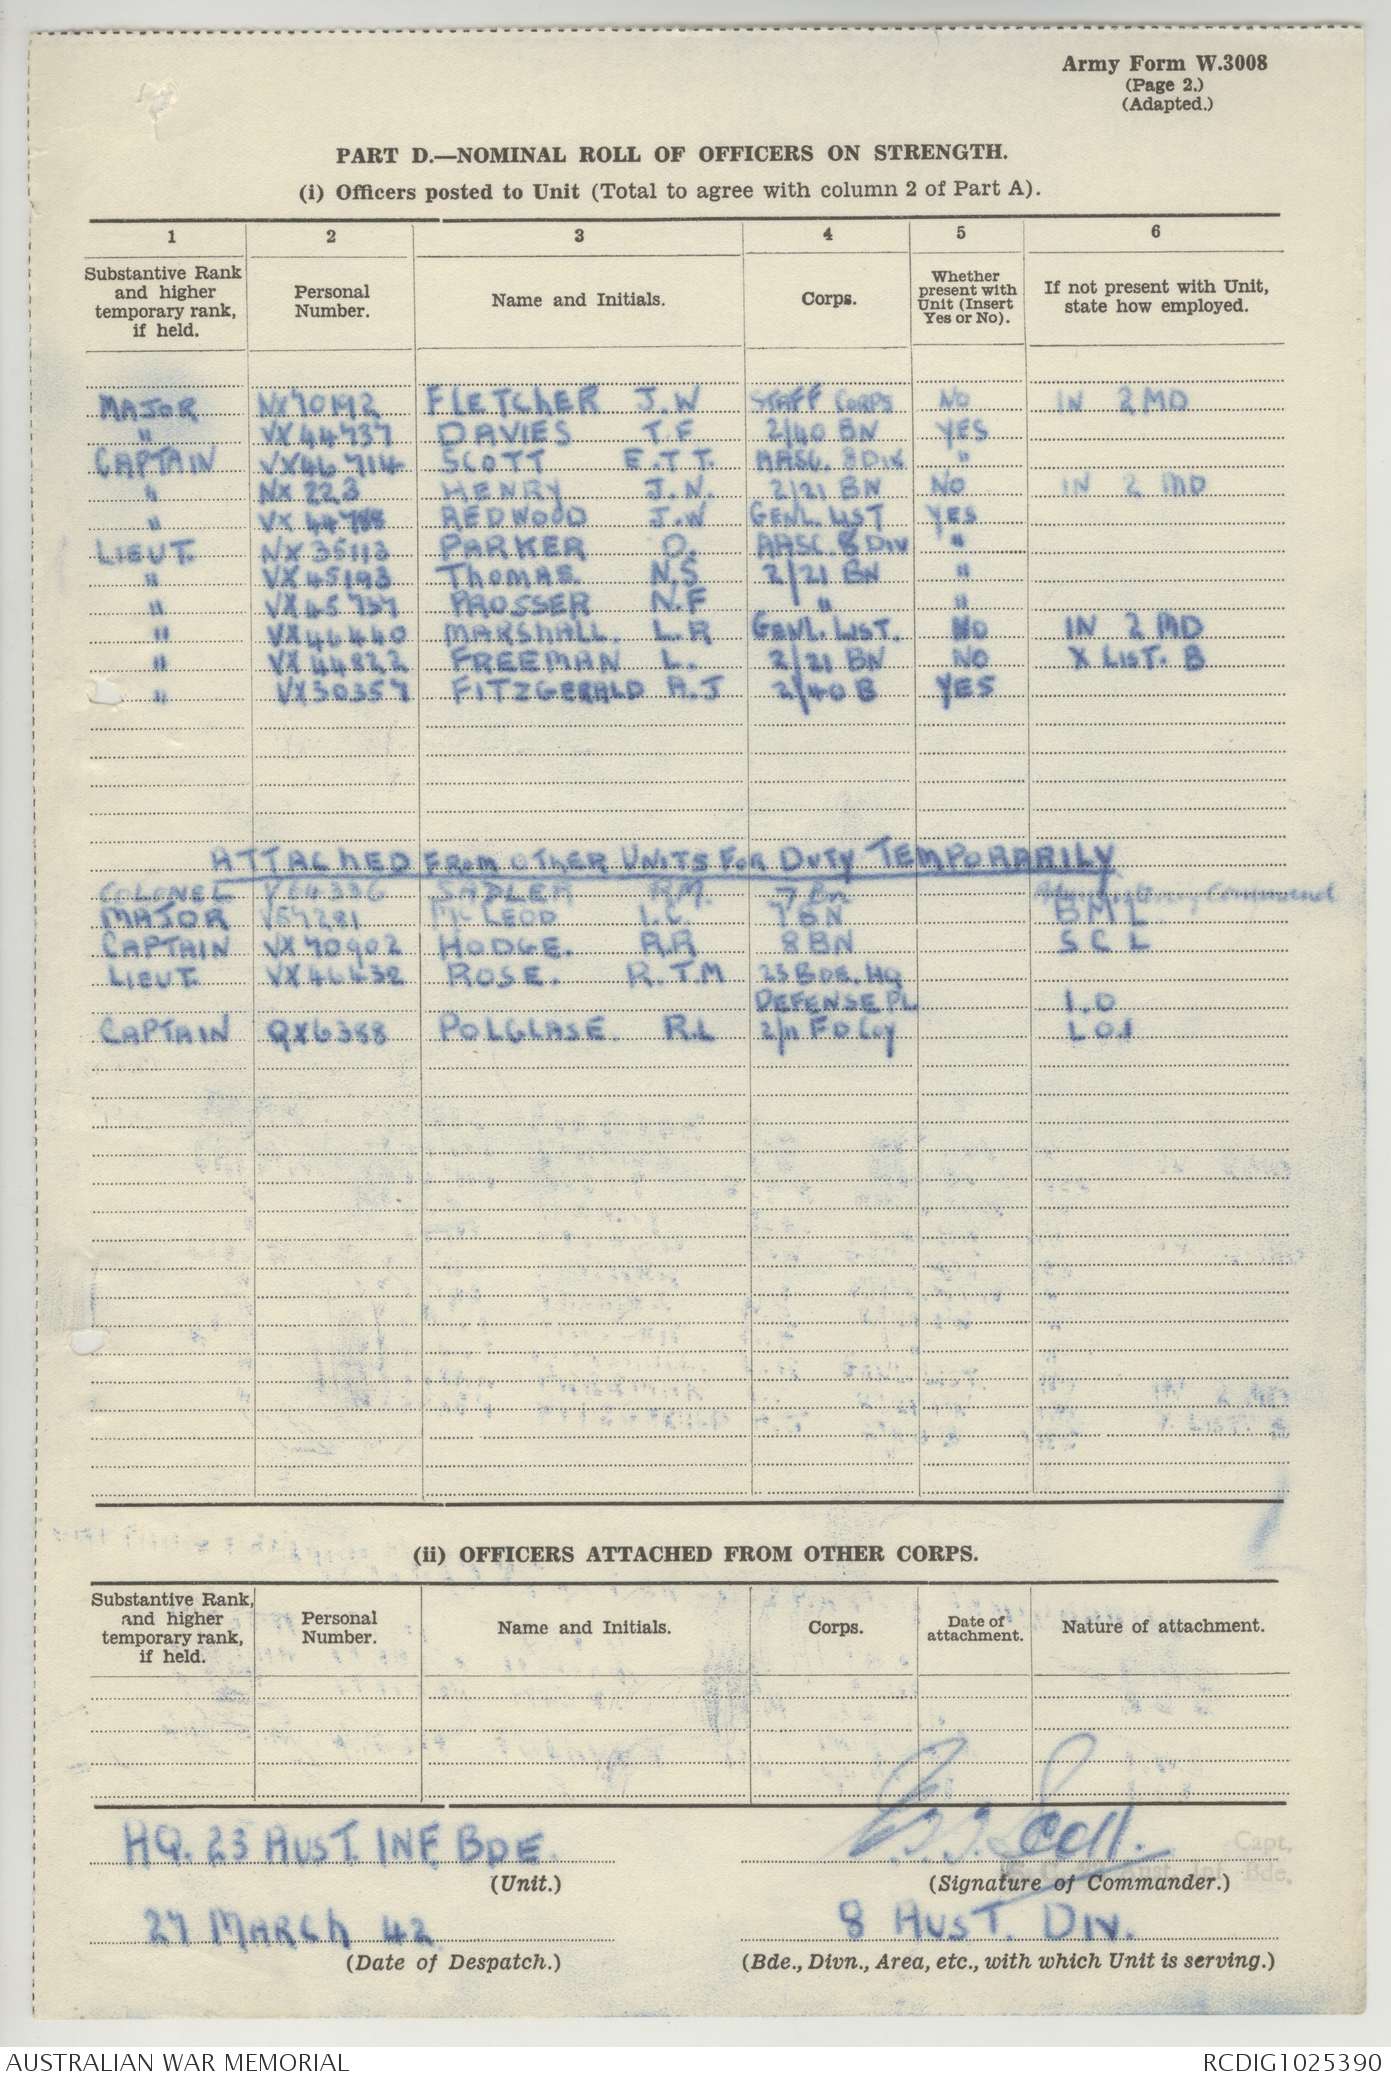 Army Form W.3008
(Page 2.)
(Adapted.)
PART D.—NOMINAL ROLL OF OFFICERS ON STRENGTH.
(i) Officers posted to Unit (Total to agree with column 2 of Part A).
1 2 3 4 5 6
Substantive Rank and higher temporary rank, if held. Personal Number. Name and Initials. Corps. Whether present with Unit (Insert Yes or No). If not present with Unit, state how employed.
MAJOR NX70192 FLETCHER J.W STAFF CORPS NO IN 2 MD
" VX44737 DAVIES T.F 2/40 BN YES
CAPTAIN VX46714 SCOTT E.T.T. AASC. 8 DIV "
" NX 223 HENRY J.N. 2/21 BN NO IN 2 MD
" VX 44788 REDWOOD J.W GENL. LIST YES
LIEUT. NX35113 PARKER O. AASC. 8 DIV "
" VX45193 THOMAE N.S 2/21 BN "
" VX45737 PROSSER N.F " "
" VX46440 MARSHALL. L.R GENL. LIST. NO IN 2 MD
" VX44822 FREEMAN L. 2/21 BN NO X LIST. B
" VX30357 FITZGERALD A.J 2/40 B YES
ATTACHED FROM OTHER UNITS FOR DUTY TEMPORARILY
COLONEL SADLER R.M. 7 Bn Command
MAJOR V57281 McLEOD I.C. 7 BN B M L
CAPTAIN VX70902 HODGE. R.R 8 BN S C L
LIEUT. VX46432 ROSE. R.T.M 23 BDE. HQ
DEFENSE PL I.O
CAPTAIN QX6358 POLGLASE. R.L 2/11 FD Coy L O.1
(ii) OFFICERS ATTACHED FROM OTHER CORPS.
Substantive Rank, and higher temporary rank, if held. Personal Number. Name and Initials. Corps. Date of attachment. Nature of attachment.
HQ. 23 AUST. INF. BDE. Scott. Capt,
(Unit.) (Signature of Commander.) Aust. Inf. Bde.
27 MARCH 42 8 AUST. DIV.
(Date of Despatch.) (Bde., Divn., Area, etc., with which Unit is serving.)
AUSTRALIAN WAR MEMORIAL RCDIG1025390